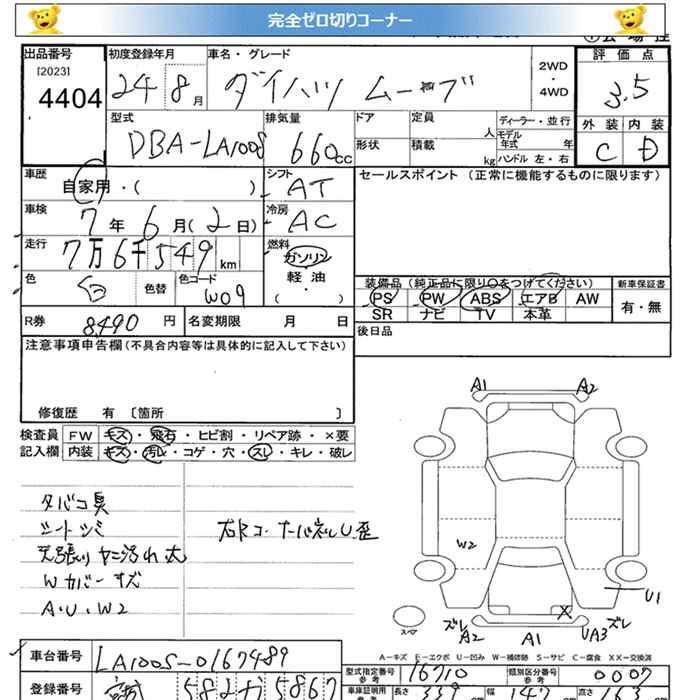 完全ゼロ切りコーナー
出品番号 初度登録年月 車名・グレード 評価点
[2023]
4404 24 8月 ダイハツ ムーブ 2WD・4WD 3.5
型式 排気量 ドア 定員 人 ディーラー・並行 外装 内装
DBA-LA100S 660cc 形状 積載 kg モデル年式 年 C D
ハンドル 左・右
車歴 シフト セールスポイント(正常に機能するものに限ります)
自家用・( ) AT
車検 7年6月(2日) 冷房 AC
走行 7万6千549km 燃料 ガソリン
軽油
・
( )
色 白 色替 色コード W09
装備品(純正品に限り〇をつけてください) 新車保証書
PS PW ABS エアB AW 有・無
SR ナビ TV 本革
R券 8,490円 名変期限 月 日 後日品
注意事項申告欄(不具合内容等は具体的に記入して下さい)
修復歴 有 〔箇所 〕
検査員 FW キズ・飛石・ヒビ割・リペア跡・×要
記入欄 内装 キズ・汚レ・コゲ・穴・スレ・キレ・破レ
タバコ臭
シートシミ
天張りヤニ汚れ大
Wカバーキズ
A・U・W2
右Rコーナーパネル U 歪
A1 A2
W2
U1
ズレ A2 A1 UA3 ズレ
スペア
A-キズ E-エクボ U-凹み W-補修跡 S-サビ C-腐食 XX-交換済
車台番号 LA100S-0167489
型式指定番号 参考 16710 類別区分番号 参考 0007
登録番号 宮城 582 か 5867
車庫証明用 長さ 339 幅 147 高さ